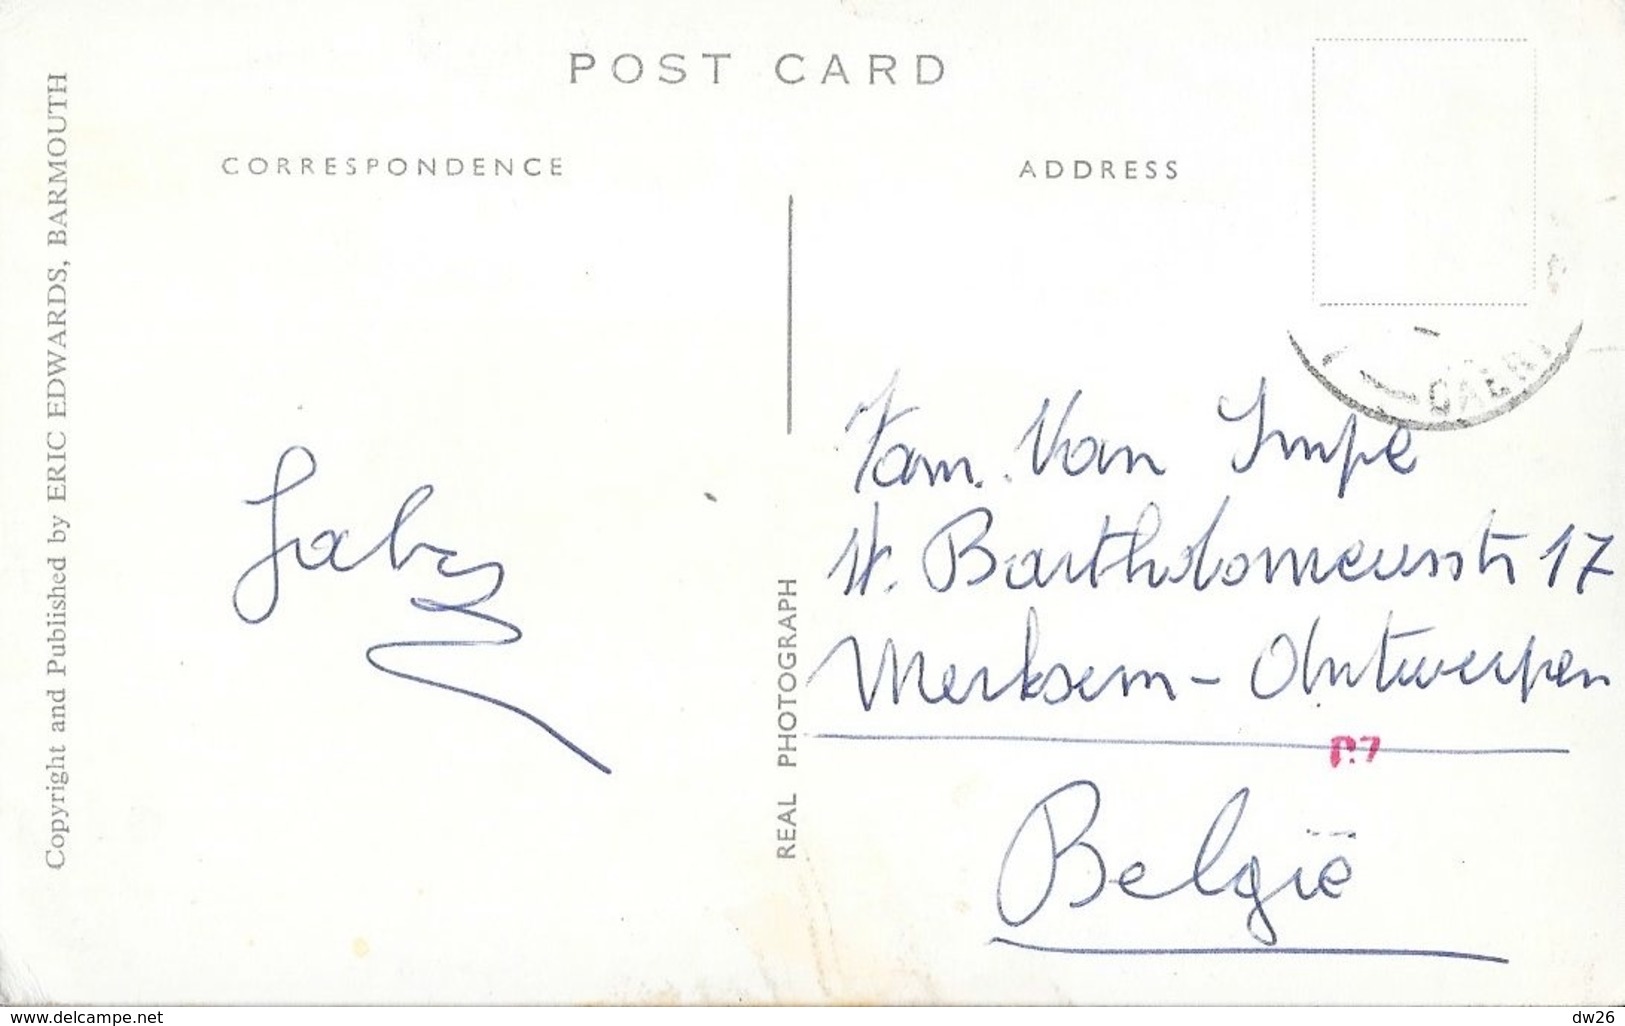 POST CARD
CORRESPONDENCE
ADDRESS
Copyright and Published by ERIC EDWARDS, BARMOUTH
REAL PHOTOGRAPH
Gaby
Fam. Van Impe
St. Bartholomeusstr 17
Merksem - Antwerpen
België
P.7
www.delcampe.net
dw26